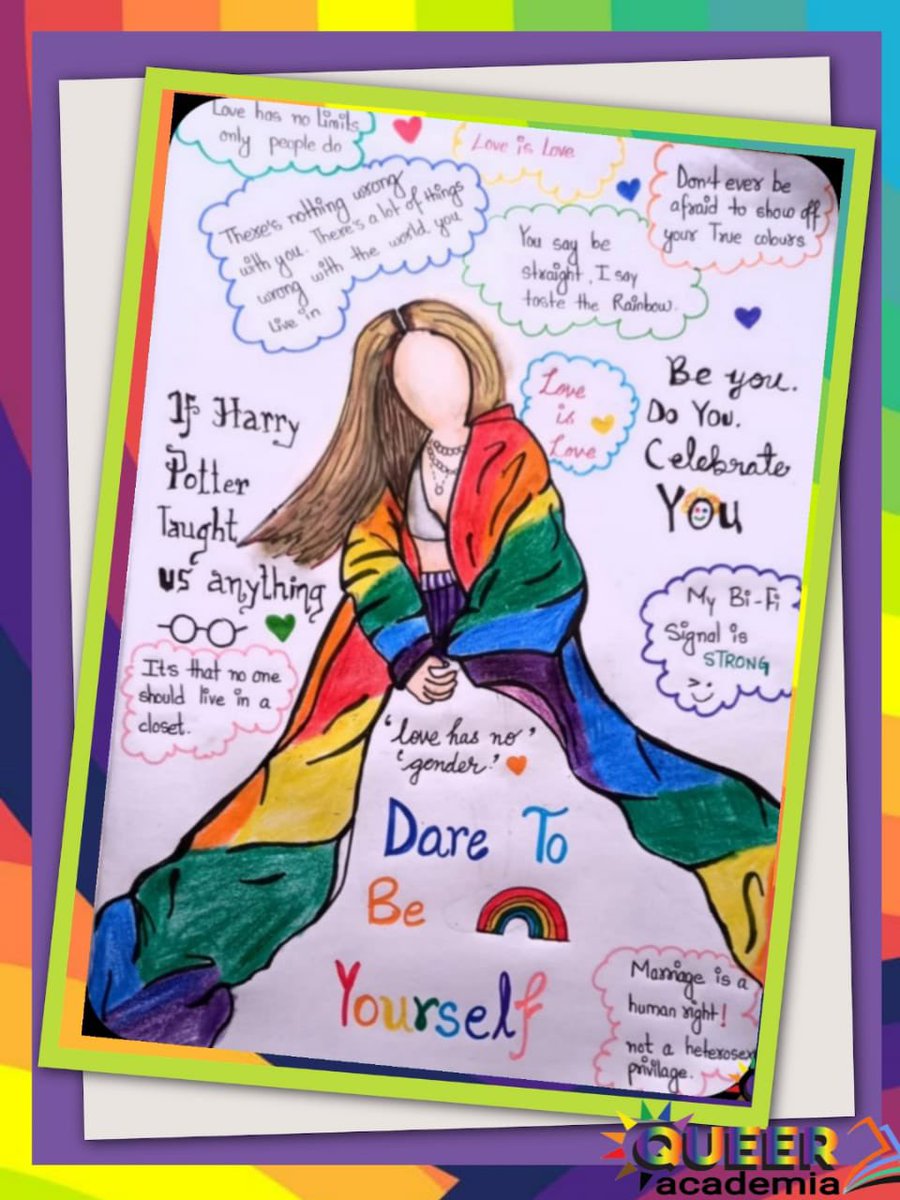 Love has no limits
only people do
Love is Love
Don't ever be
afraid to show off
your True colours
There's nothing wrong
with you. There's a lot of things
wrong with the world you
live in
You say be
straight, I say
taste the Rainbow.
Love
is
Love
Be you.
Do You.
Celebrate
You
If Harry
Potter
Taught
us anything
Its that no one
should live in a
closet.
My Bi-Fi
Signal is
STRONG
'love has no'
'gender.'
Dare To
Be
Yourself
Marriage is a
human right!
not a heterosex
privilage.
QUEER
academia